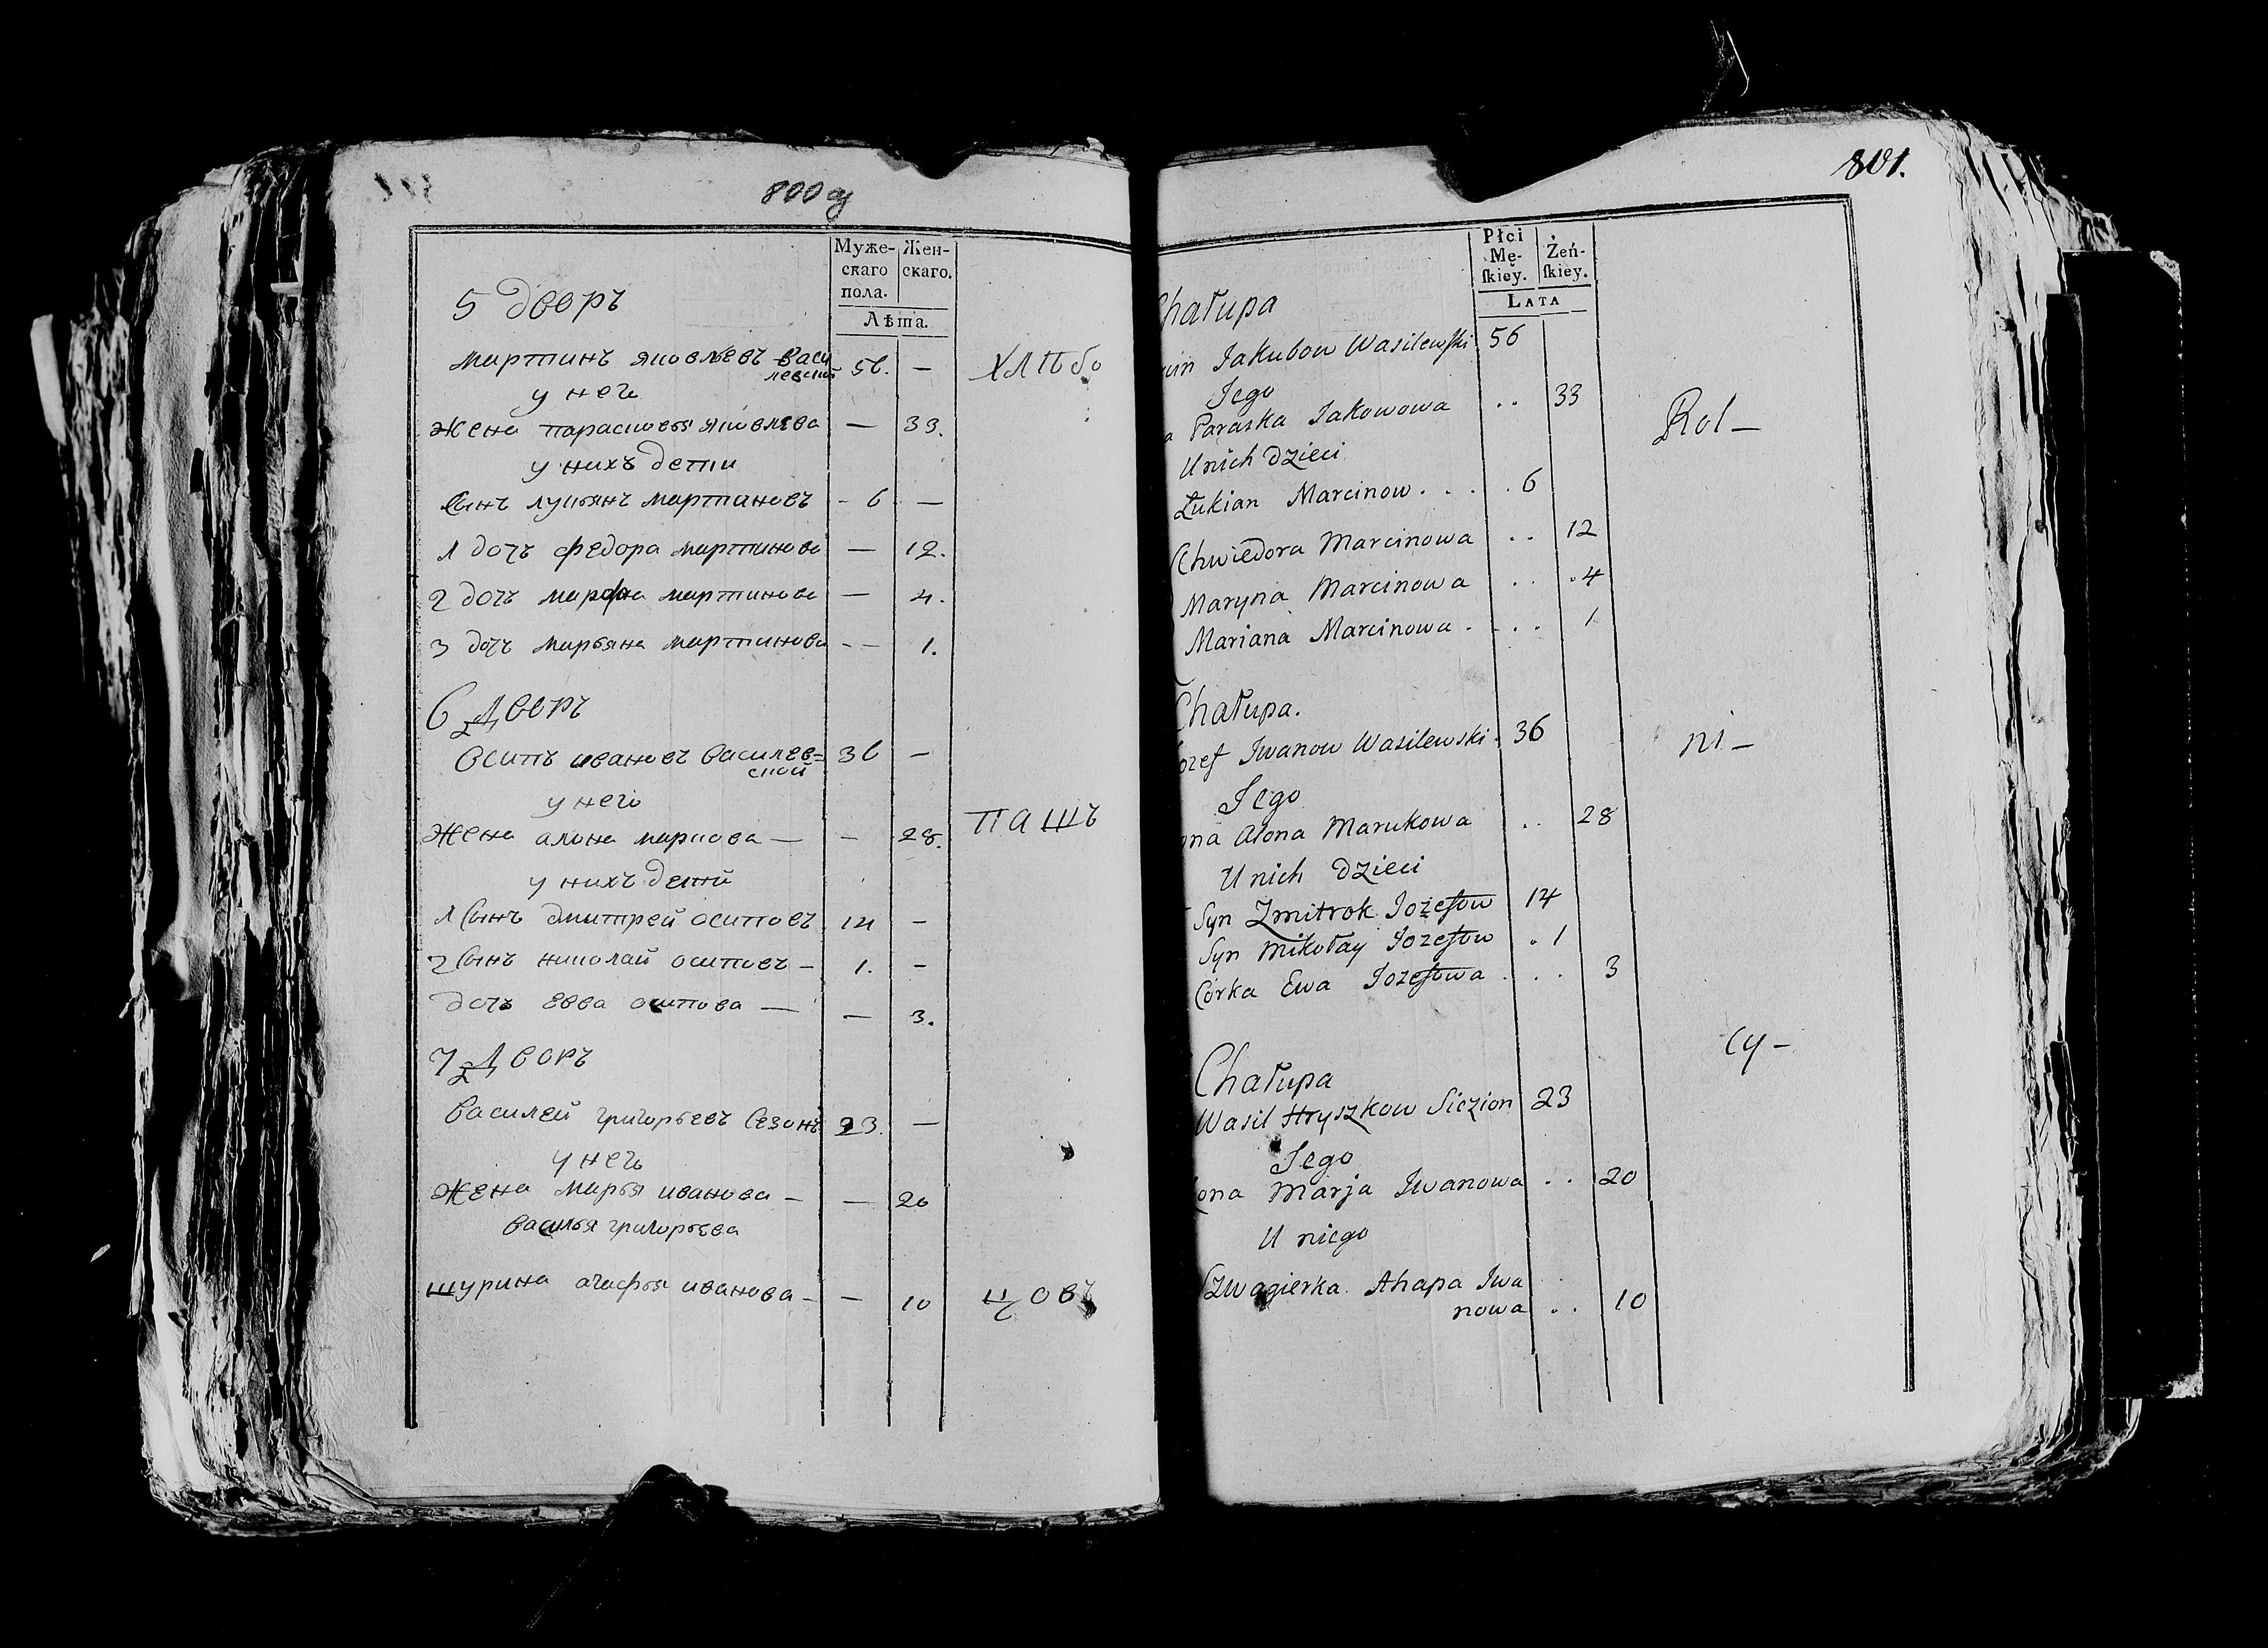 800
Муже-
скаго
пола.
Жен-
скаго.
Лѣта.
5 дворъ
мартинъ яковлевъ васи
левский 56. —
у него
жена парасковья яковлева — 33.
у нихъ дети
сынъ лукьянъ мартиновъ - 6 —
1 дочь федора мартинова — 12.
2 дочь марфна мартинова — 4.
3 дочь марьяна мартинова - — 1.
хлѣбо
6 дворъ
осипъ ивановъ василев=
ской 36 —
у него
жена алона маркова — — 28.
пашъ
у нихъ детей
1 сынъ дмитрей осиповъ 14 —
2 сынъ николай осиповъ — 1. —
дочь евва осипова — — 3.
7 дворъ
василей григорьевъ сезонъ 23. —
у него
жена марья иванова — — 20
василья григорьева
шурина агафья иванова — — 10
цовъ
801.
Płci
Mę-
ſkiey.
Żeń-
ſkiey.
LATA
Chałupa
Jakubow Wasilewski 56
Jego
Paraska Jakowowa .. 33
U nich dzieci
Łukian Marcinow . . . . 6
Chwiedora Marcinowa .. 12
Maryna Marcinowa . . . 4
Mariana Marcinowa . . . . 1
Rol —
Chałupa.
Jozef Iwanow Wasilewski . 36
ni —
Jego
Żona Alona Marukowa .. 28
U nich dzieci
Syn Zmitrok Jozefow 14
Syn Mikołay Jozefow . 1
Córka Ewa Jozefowa . . . 3
cy —
Chałupa
Wasil Hryszkow Siezion 23
Jego
Żona Marja Iwanowa . . 20
U niego
Szwagierka Ahapa Iwa
nowa . . 10